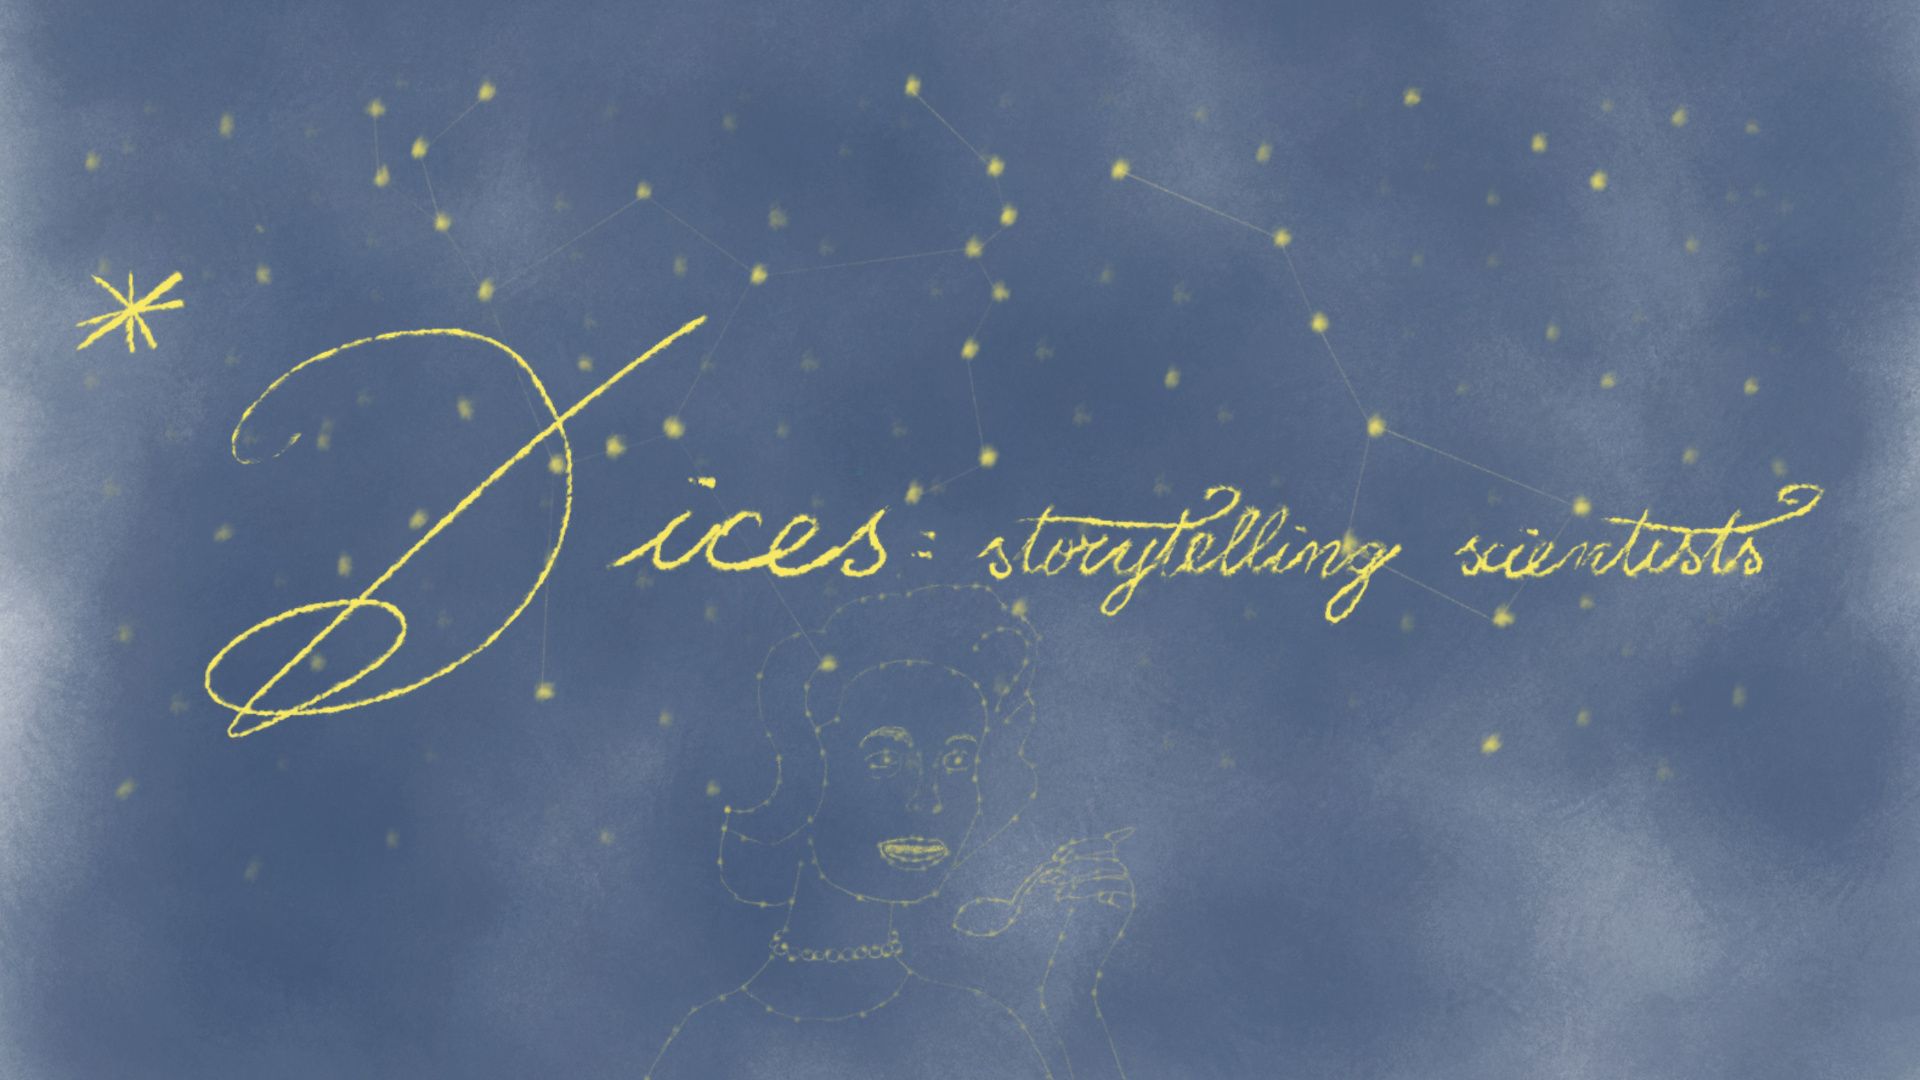 *Dices: storytelling scientists